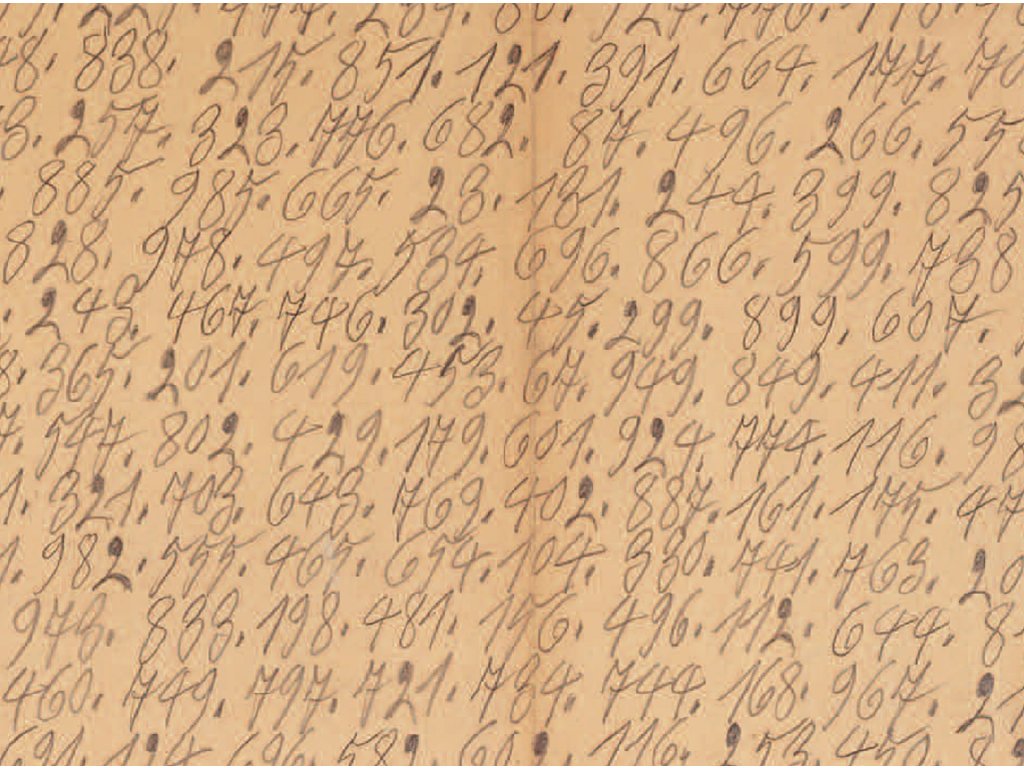 838. 215. 851. 121. 391. 664. 177.
257. 323. 776. 682. 87. 496. 266. 55
885. 985. 665. 23. 181. 244. 399. 825
828. 978. 497. 534. 696. 866. 599. 738
243. 467. 746. 302. 45. 299. 899. 607.
365. 201. 619. 453. 67. 949. 849. 411. 32
547. 802. 429. 179. 601. 924. 774. 116. 98
1. 321. 703. 643. 769. 402. 887. 161. 175. 47
1. 982. 555. 465. 654. 104. 330. 741. 763. 20
973. 833. 198. 481. 156. 496. 112. 644. 8
460. 749. 797. 721. 784. 744. 168. 967. 21
116. 253. 450.